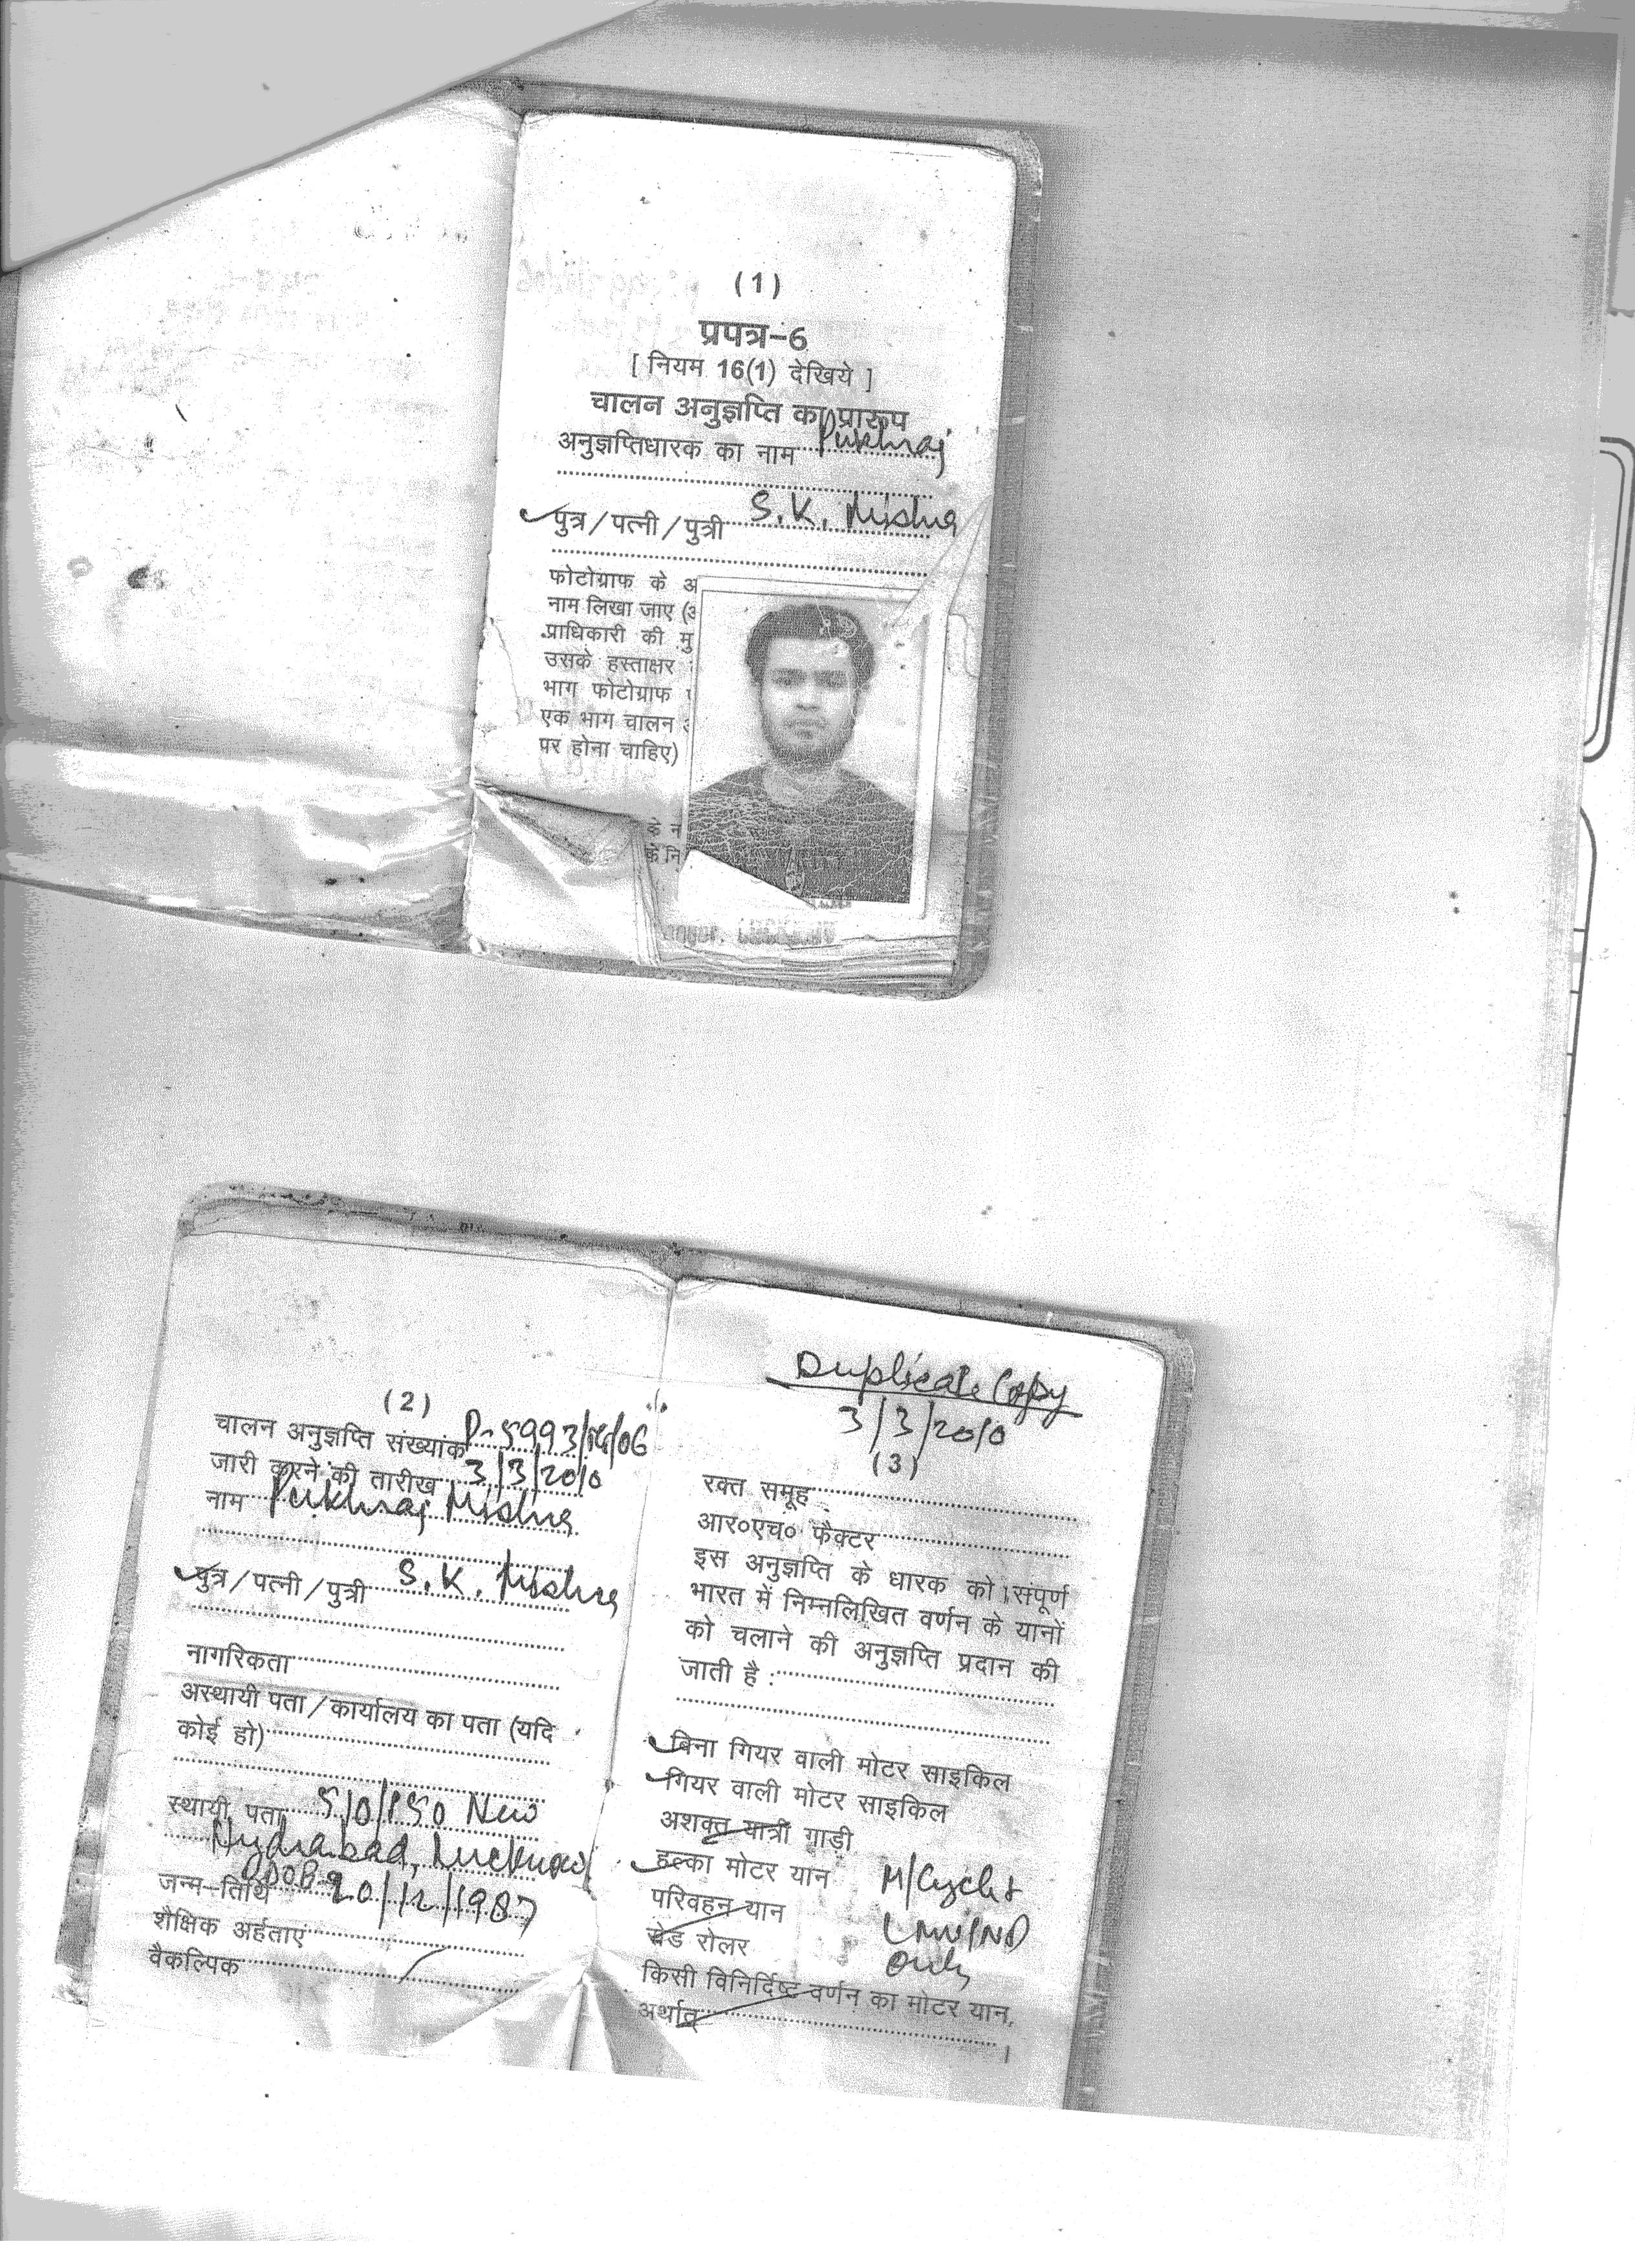 (1)
प्रपत्र-6
[ नियम 16(1) देखिये ]
चालन अनुज्ञप्ति का प्रारूप
अनुज्ञप्तिधारक का नाम Pukhraj
पुत्र/पत्नी/पुत्री S.K. Mishra
फोटोग्राफ के
नाम लिखा जाए
प्राधिकारी की
उसके हस्ताक्षर
भाग फोटोग्राफ
एक भाग चालन
पर होना चाहिए)
(2)
चालन अनुज्ञप्ति संख्यांक
जारी करने की तारीख 3/3/2010
नाम Pukhraj Mishra
पुत्र/पत्नी/पुत्री S.K. Mishra
नागरिकता
अस्थायी पता/कार्यालय का पता (यदि
कोई हो)
स्थायी पता New
Hyderabad, Lucknow
जन्म-तिथि 20/12/1987
शैक्षिक अर्हताएं
वैकल्पिक
Duplicate Copy
3/3/2010
(3)
रक्त समूह
आर०एच० फैक्टर
इस अनुज्ञप्ति के धारक को संपूर्ण
भारत में निम्नलिखित वर्णन के यानों
को चलाने की अनुज्ञप्ति प्रदान की
जाती है :
बिना गियर वाली मोटर साइकिल
गियर वाली मोटर साइकिल
अशक्त यात्री गाड़ी
हल्का मोटर यान M/Cycle
परिवहन यान
रोड रोलर Only
किसी विनिर्दिष्ट वर्णन का मोटर यान,
अर्थात्